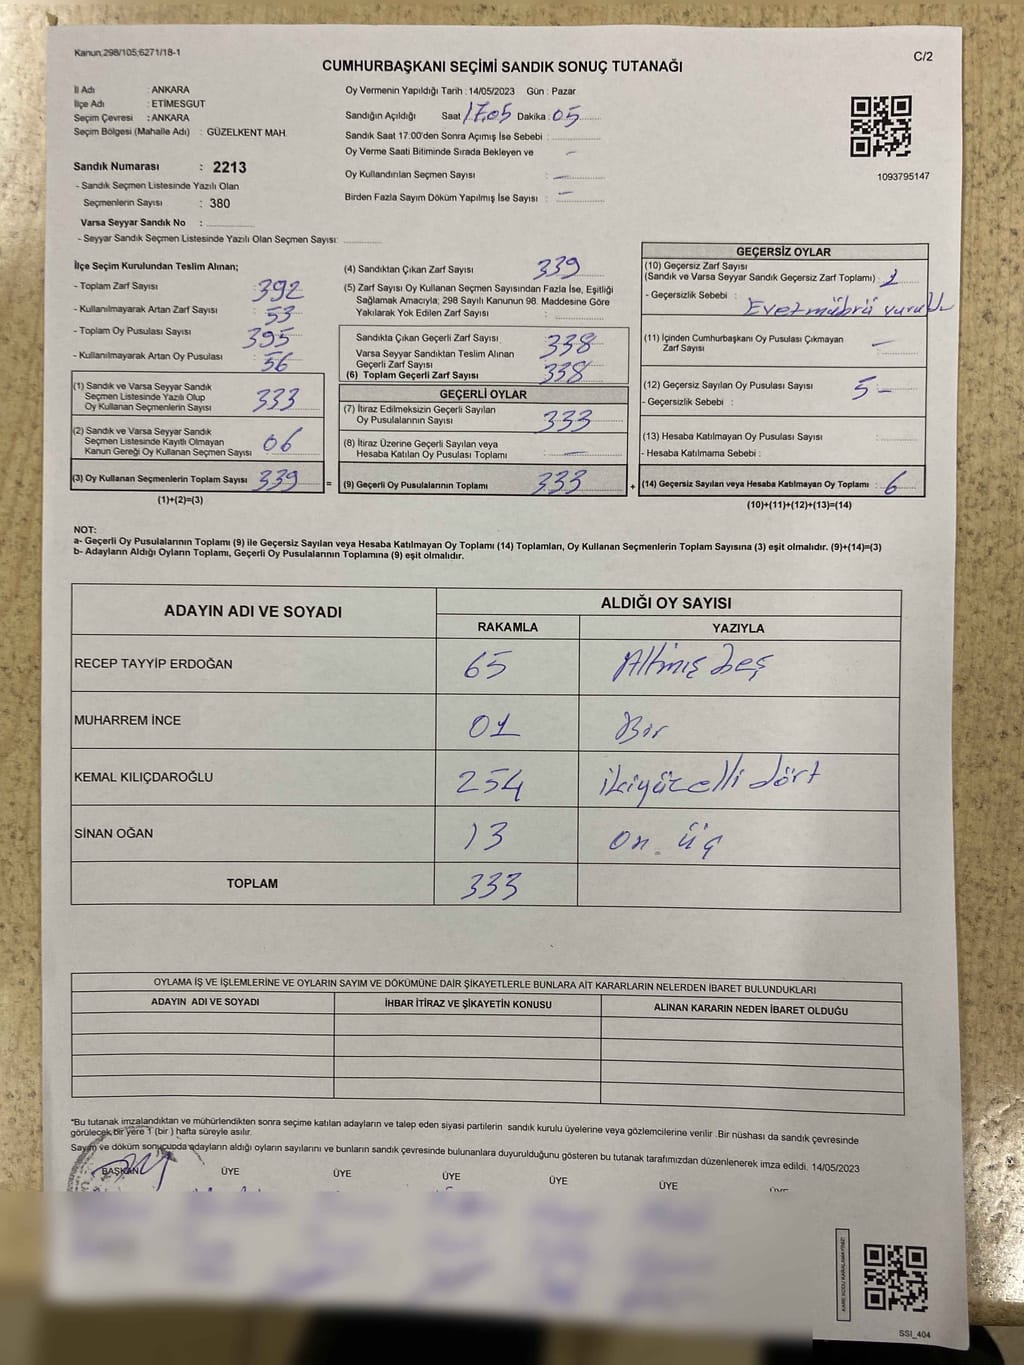 Kanun;298/105;6271/18-1
C/2
CUMHURBAŞKANI SEÇİMİ SANDIK SONUÇ TUTANAĞI
İl Adı : ANKARA
İlçe Adı : ETİMESGUT
Seçim Çevresi : ANKARA
Seçim Bölgesi (Mahalle Adı) : GÜZELKENT MAH.
Sandık Numarası : 2213
- Sandık Seçmen Listesinde Yazılı Olan
Seçmenlerin Sayısı : 380
Varsa Seyyar Sandık No :
- Seyyar Sandık Seçmen Listesinde Yazılı Olan Seçmen Sayısı:
Oy Vermenin Yapıldığı Tarih : 14/05/2023 Gün : Pazar
Sandığın Açıldığı Saat 17.05 Dakika : 05
Sandık Saat 17:00'den Sonra Açımış İse Sebebi :
Oy Verme Saati Bitiminde Sırada Bekleyen ve -
Oy Kullandırılan Seçmen Sayısı : -
Birden Fazla Sayım Döküm Yapılmış İse Sayısı : -
1093795147
İlçe Seçim Kurulundan Teslim Alınan;
- Toplam Zarf Sayısı : 392
- Kullanılmayarak Artan Zarf Sayısı : 53
- Toplam Oy Pusulası Sayısı : 395
- Kullanılmayarak Artan Oy Pusulası : 56
(1) Sandık ve Varsa Seyyar Sandık
Seçmen Listesinde Yazılı Olup
Oy Kullanan Seçmenlerin Sayısı : 333
(2) Sandık ve Varsa Seyyar Sandık
Seçmen Listesinde Kayıtlı Olmayan
Kanun Gereği Oy Kullanan Seçmen Sayısı : 06
(3) Oy Kullanan Seçmenlerin Toplam Sayısı : 339
(1)+(2)=(3)
(4) Sandıktan Çıkan Zarf Sayısı : 339
(5) Zarf Sayısı Oy Kullanan Seçmen Sayısından Fazla İse, Eşitliği
Sağlamak Amacıyla; 298 Sayılı Kanunun 98. Maddesine Göre
Yakılarak Yok Edilen Zarf Sayısı :
Sandıkta Çıkan Geçerli Zarf Sayısı : 338
Varsa Seyyar Sandıktan Teslim Alınan
Geçerli Zarf Sayısı :
(6) Toplam Geçerli Zarf Sayısı : 338
GEÇERLİ OYLAR
(7) İtiraz Edilmeksizin Geçerli Sayılan
Oy Pusulalarının Sayısı : 333
(8) İtiraz Üzerine Geçerli Sayılan veya
Hesaba Katılan Oy Pusulası Toplamı : -
= (9) Geçerli Oy Pusulalarının Toplamı : 333
GEÇERSİZ OYLAR
(10) Geçersiz Zarf Sayısı
(Sandık ve Varsa Seyyar Sandık Geçersiz Zarf Toplamı) : 1
- Geçersizlik Sebebi : Evet mührü vuruldu
(11) İçinden Cumhurbaşkanı Oy Pusulası Çıkmayan
Zarf Sayısı : -
(12) Geçersiz Sayılan Oy Pusulası Sayısı : 5 -
- Geçersizlik Sebebi :
(13) Hesaba Katılmayan Oy Pusulası Sayısı :
- Hesaba Katılmama Sebebi :
+ (14) Geçersiz Sayılan veya Hesaba Katılmayan Oy Toplamı : 6
(10)+(11)+(12)+(13)=(14)
NOT:
a- Geçerli Oy Pusulalarının Toplamı (9) ile Geçersiz Sayılan veya Hesaba Katılmayan Oy Toplamı (14) Toplamları, Oy Kullanan Seçmenlerin Toplam Sayısına (3) eşit olmalıdır. (9)+(14)=(3)
b- Adayların Aldığı Oyların Toplamı, Geçerli Oy Pusulalarının Toplamına (9) eşit olmalıdır.
ADAYIN ADI VE SOYADI ALDIĞI OY SAYISI
RAKAMLA YAZIYLA
RECEP TAYYİP ERDOĞAN 65 Altmış beş
MUHARREM İNCE 01 Bir
KEMAL KILIÇDAROĞLU 254 ikiyüz elli dört
SİNAN OĞAN 13 on üç
TOPLAM 333
OYLAMA İŞ VE İŞLEMLERİNE VE OYLARIN SAYIM VE DÖKÜMÜNE DAİR ŞİKAYETLERLE BUNLARA AİT KARARLARIN NELERDEN İBARET BULUNDUKLARI
ADAYIN ADI VE SOYADI İHBAR İTİRAZ VE ŞİKAYETİN KONUSU ALINAN KARARIN NEDEN İBARET OLDUĞU
*Bu tutanak imzalandıktan ve mühürlendikten sonra seçime katılan adayların ve talep eden siyasi partilerin sandık kurulu üyelerine veya gözlemcilerine verilir .Bir nüshası da sandık çevresinde
görülecek bir yere 1 (bir ) hafta süreyle asılır.
Sayım ve döküm sonucunda adayların aldığı oyların sayılarını ve bunların sandık çevresinde bulunanlara duyurulduğunu gösteren bu tutanak tarafımızdan düzenlenerek imza edildi. 14/05/2023
BAŞKAN ÜYE ÜYE ÜYE ÜYE ÜYE
SSI_404